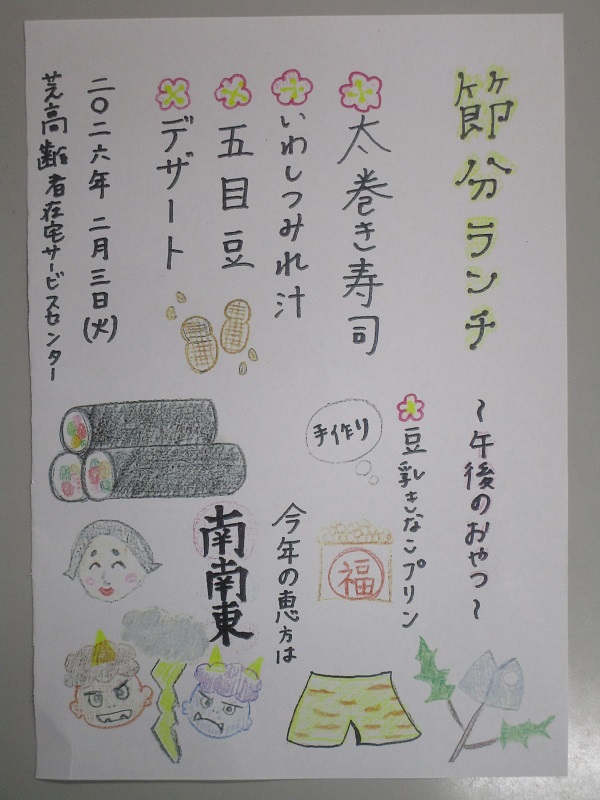 節分ランチ
太巻き寿司
いわしつみれ汁
五目豆
デザート
二〇二六年 二月三日(火)
芝高齢者在宅サービスセンター
～午後のおやつ～
豆乳きなこプリン
手作り
福
今年の恵方は
南南東